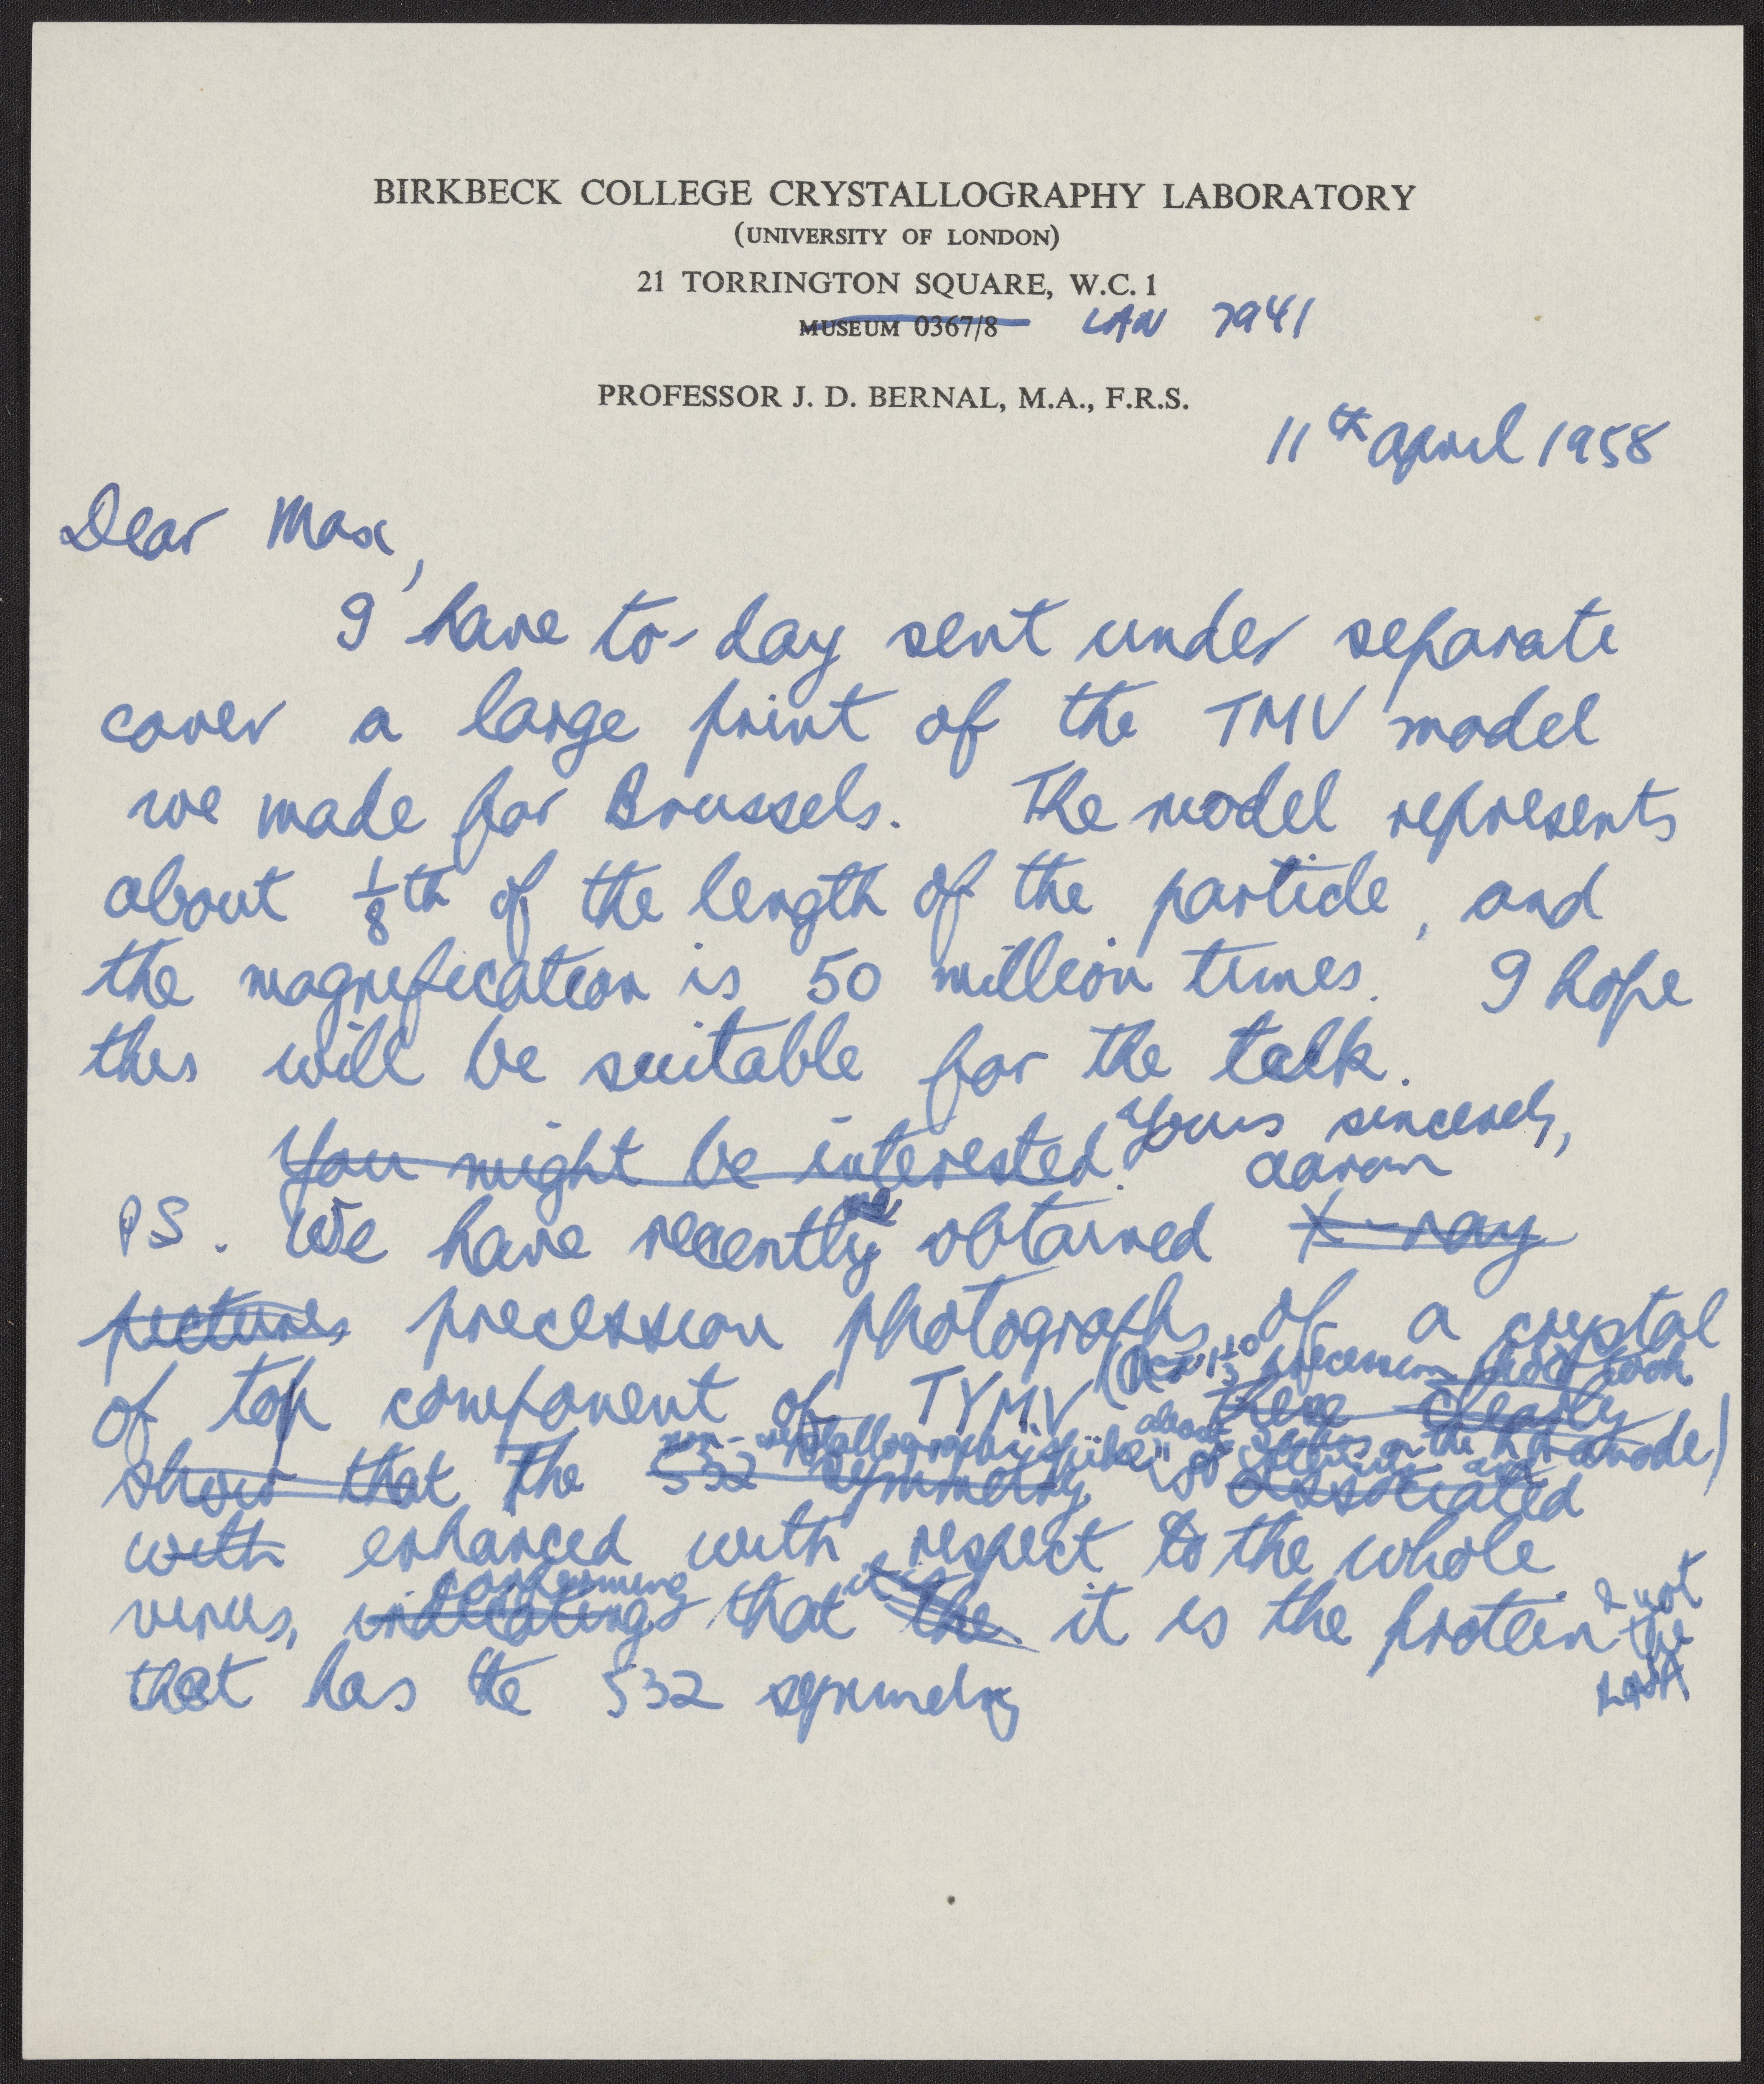 BIRKBECK COLLEGE CRYSTALLOGRAPHY LABORATORY
(UNIVERSITY OF LONDON)
21 TORRINGTON SQUARE, W.C.1
MUSEUM 0367/8 LAN 7941
PROFESSOR J. D. BERNAL, M.A., F.R.S.
11th April 1958
Dear Max,
I have to-day sent under separate
cover a large print of the TMV model
we made for Brussels. The model represents
about 1/8th of the length of the particle, and
the magnification is 50 million times. I hope
this will be suitable for the talk.
Yours sincerely,
You might be interested. Aaron
PS. We have recently obtained X-ray
pictures precession photographs of a crystal
precession photo took
of top component of TYMV these clearly
non-crystallographic "spikes" about on the anode)
show that the 532 symmetry associated
with enhanced with respect to the whole
confirming it is
virus, indicating that the it is the protein & not the RNA
that has the 532 symmetry